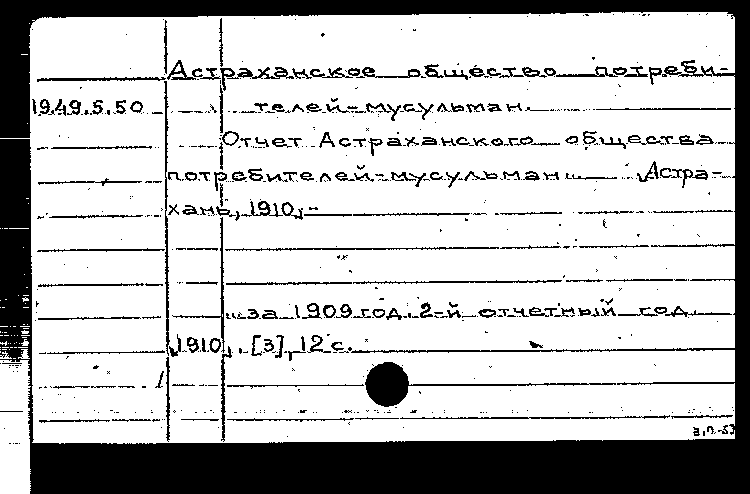 Астраханское общество потреби-
19.49.5.50 телей-мусульман.
Отчет Астраханского общества
потребителей-мусульман... Астра-
хань, 1910,-
...за 1909 год. 2-й отчетный год.
1910. [3], 12 с.
1